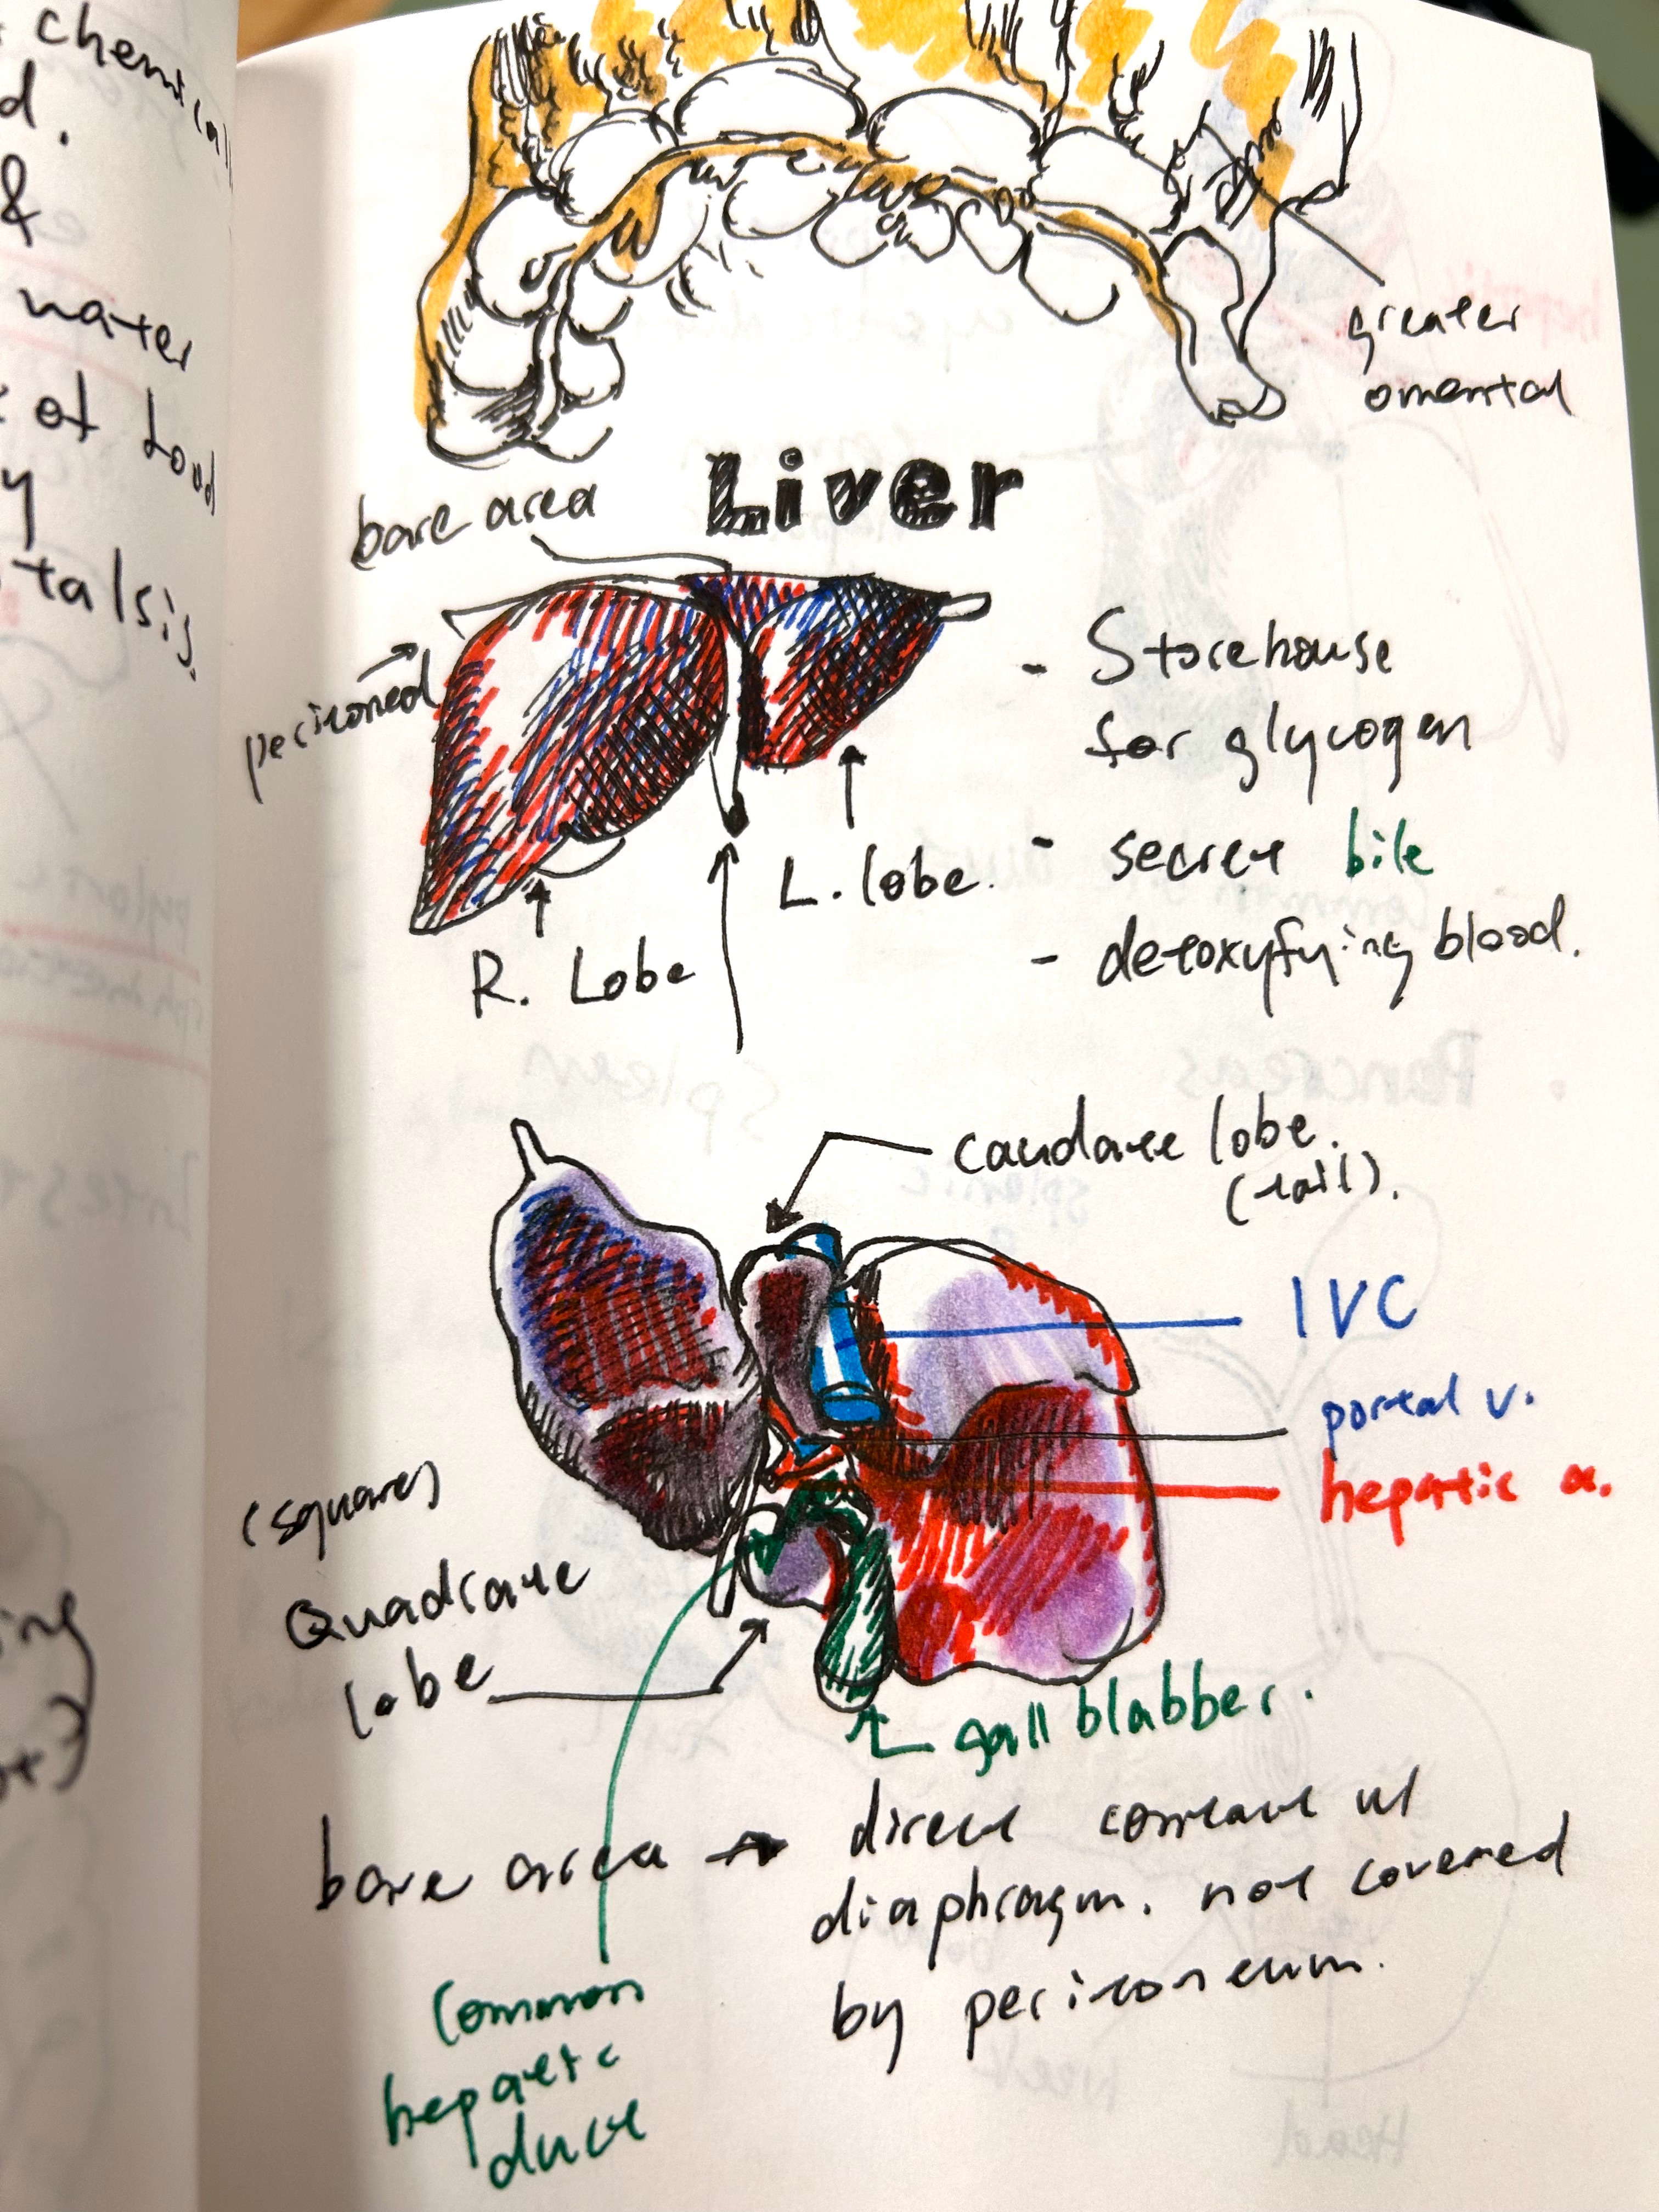 chemical
d.
&
water
of food
y
talsis.
greater
omental
Liver
bare area
peritoned
R. Lobe
L. lobe.
- Storehouse
for glycogen
- secret bile
- detoxyfying blood.
caudate lobe.
(tail).
IVC
portal v.
hepatic a.
(square)
Quadrate
lobe
gall blabber.
bare area → direct contact w/
diaphragm. not covered
by peritoneum.
Common
hepatic
duct
ing